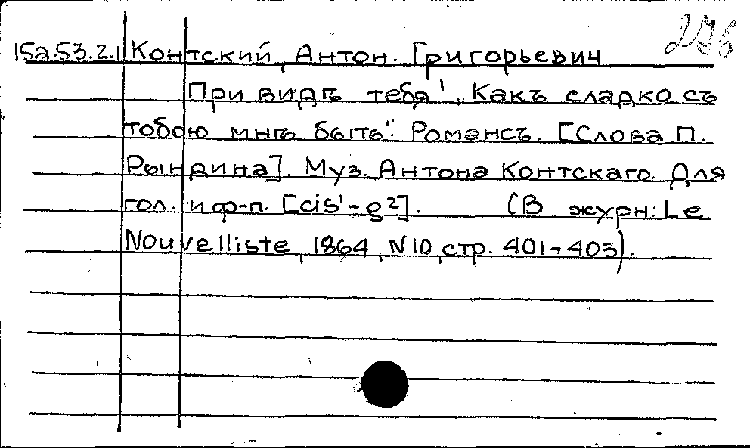 15a.53.2.1 Контский, Антон. Григорьевич
При видѣ тебя', Какъ сладко съ
тобою мнѣ быть": Романсъ. [Слова П.
Рындина]. Муз. Антона Контскаго. Для
гол. и ф-п. [cis¹-g²]. (В журн: Le
Nouvelliste, 1864, N10, стр. 401-403).